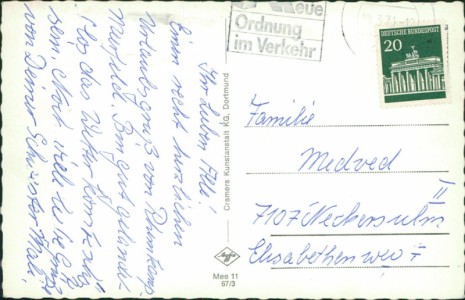 Neue
Ordnung
im Verkehr
DEUTSCHE BUNDESPOST
20
Ihr Lieben All!
Einen recht herzlichen
Urlaubsgruß vom
Bin gut gelandet
das Wetter könnte
sein. Nun viele liebe Grüße
von Deiner Schwester
Cramers Kunstanstalt KG, Dortmund
Familie
Medved
7107 Neckarsulm
Elisabethenweg 7
Mes 11
67/3